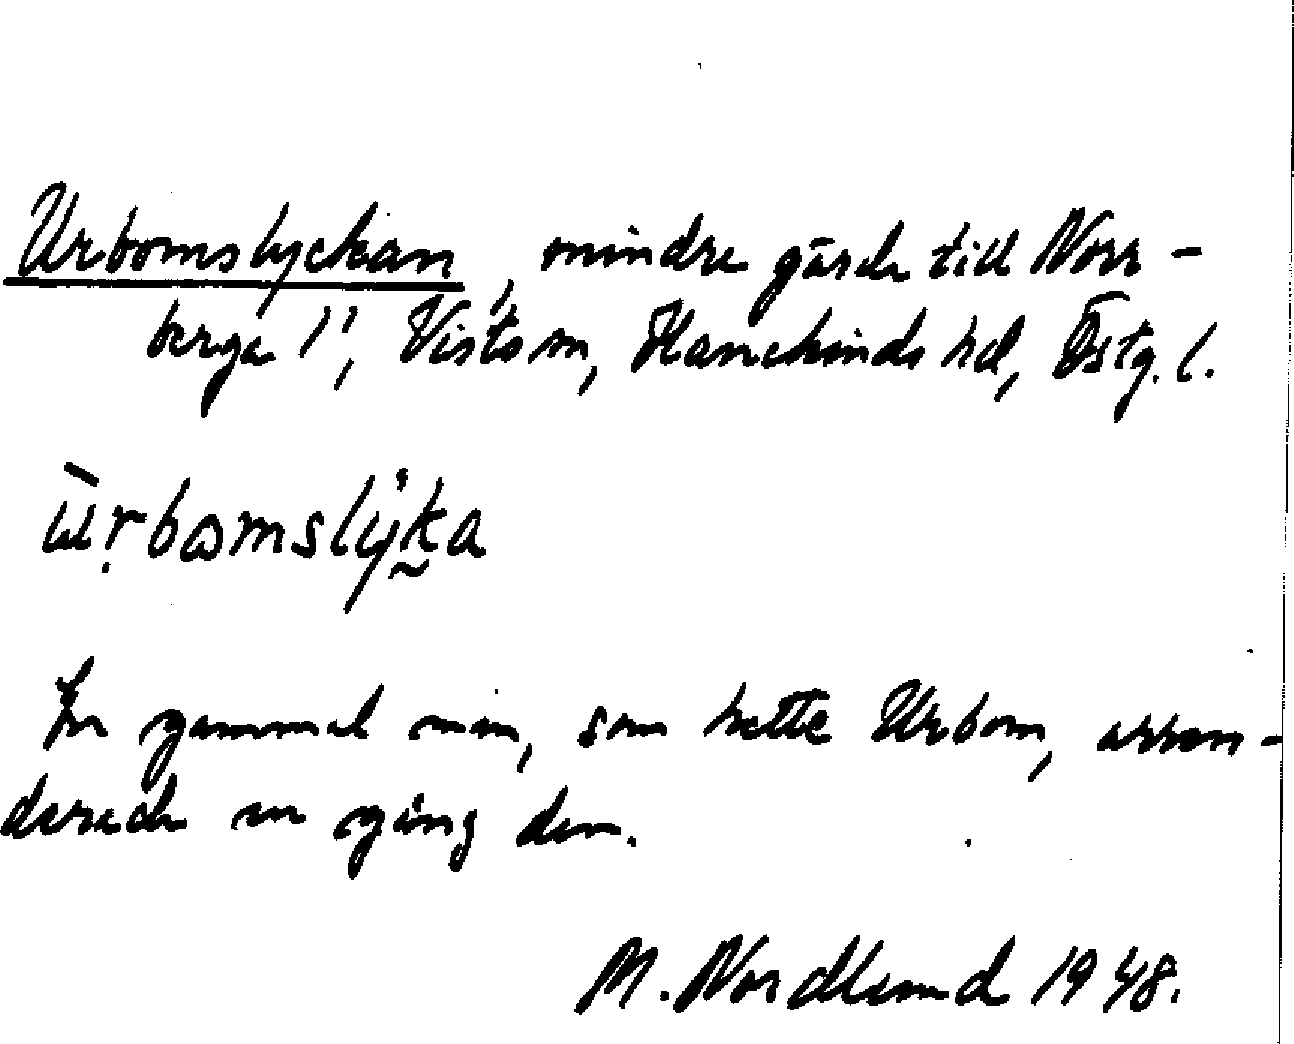 Urbomslyckan, mindre gärde till Norr-
berga 1¹, Vists sn, Hanekinds hd, Östg. l.
ùṛbɷmslyka
En gammal man, som hette Urbom, arren-
derade en gång den.
M. Nordlund 1948.